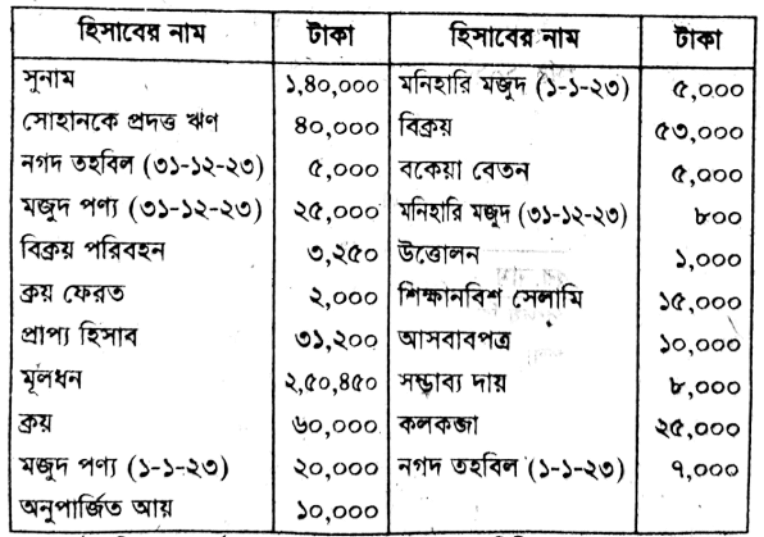 হিসাবের নাম টাকা হিসাবের নাম টাকা
সুনাম ১,৪০,০০০ মনিহারি মজুদ (১-১-২৩) ৫,০০০
সোহানকে প্রদত্ত ঋণ ৪০,০০০ বিক্রয় ৫৩,০০০
নগদ তহবিল (৩১-১২-২৩) ৫,০০০ বকেয়া বেতন ৫,০০০
মজুদ পণ্য (৩১-১২-২৩) ২৫,০০০ মনিহারি মজুদ (৩১-১২-২৩) ৮০০
বিক্রয় পরিবহন ৩,২৫০ উত্তোলন ১,০০০
ক্রয় ফেরত ২,০০০ শিক্ষানবিশ সেলামি ১৫,০০০
প্রাপ্য হিসাব ৩১,২০০ আসবাবপত্র ১০,০০০
মূলধন ২,৫০,৪৫০ সম্ভাব্য দায় ৮,০০০
ক্রয় ৬০,০০০ কলকব্জা ২৫,০০০
মজুদ পণ্য (১-১-২৩) ২০,০০০ নগদ তহবিল (১-১-২৩) ৭,০০০
অনুপার্জিত আয় ১০,০০০